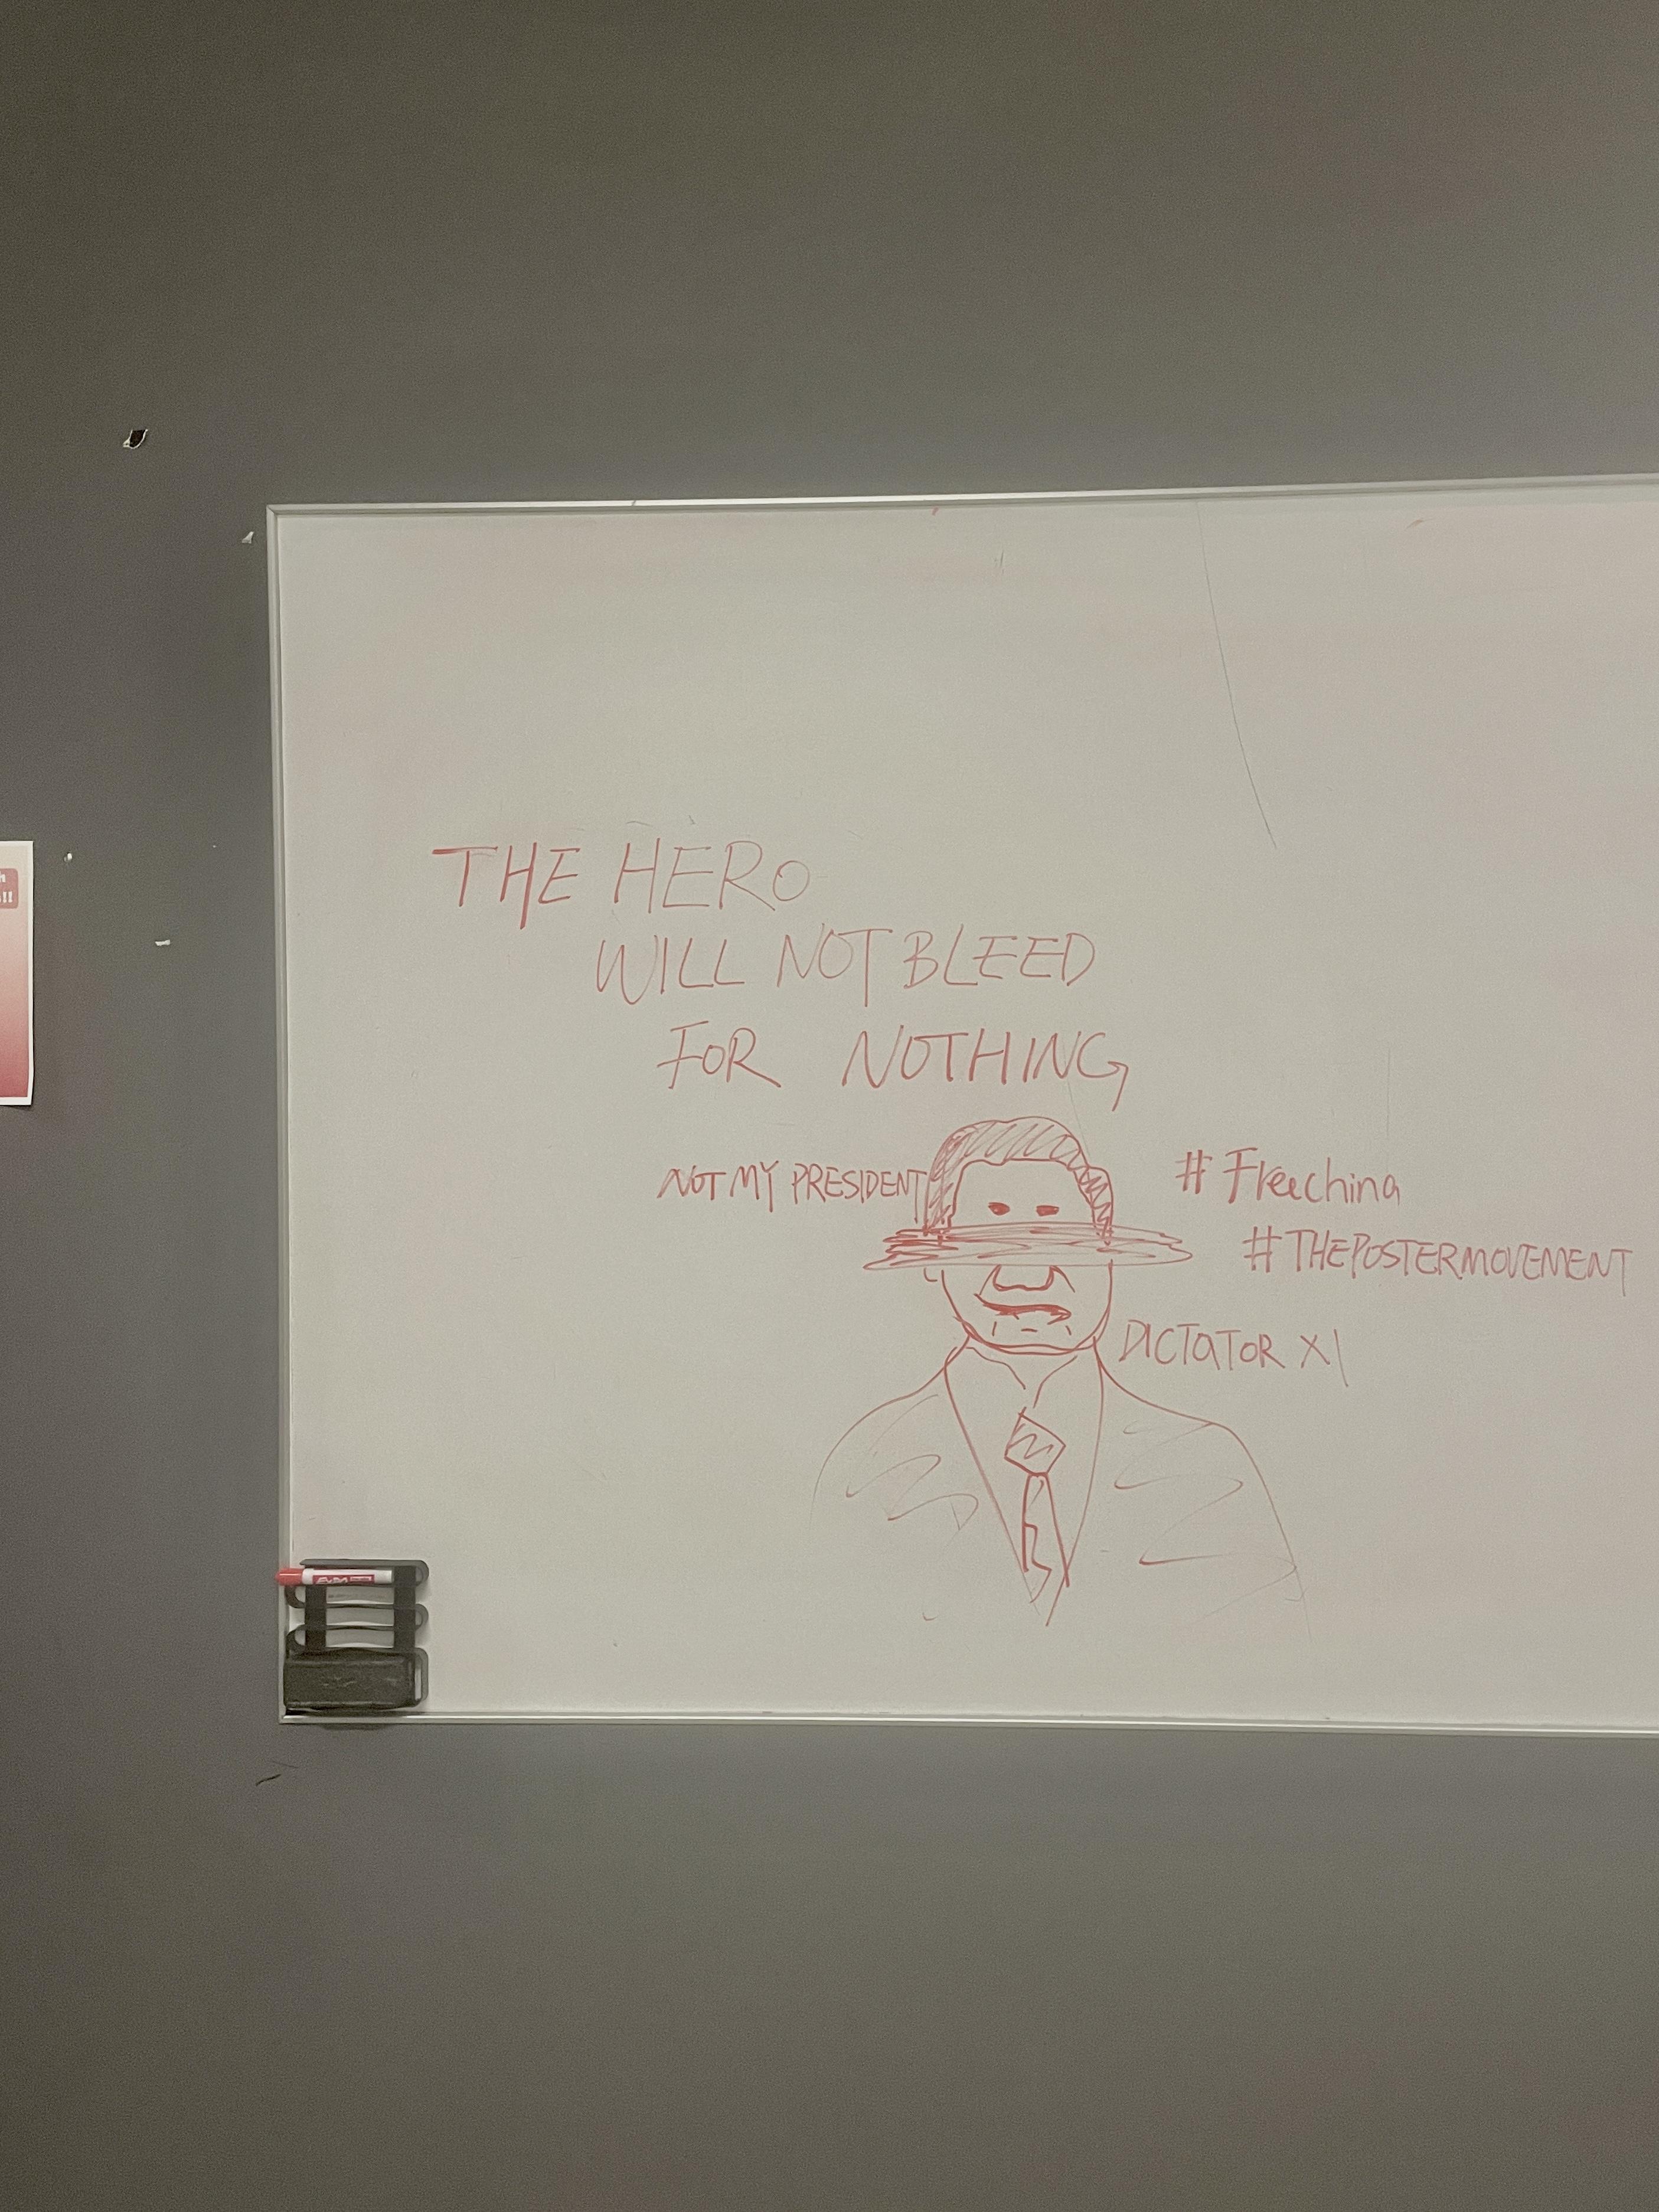 THE HERO
WILL NOT BLEED
FOR NOTHING
NOT MY PRESIDENT
#Freechina
#THEPOSTERMOVEMENT
DICTATOR XI